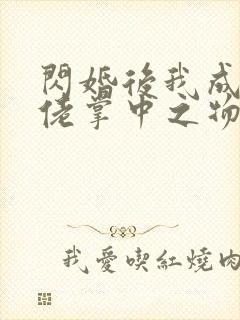 閃婚後我成
佬掌中之物
我愛喫紅燒肉